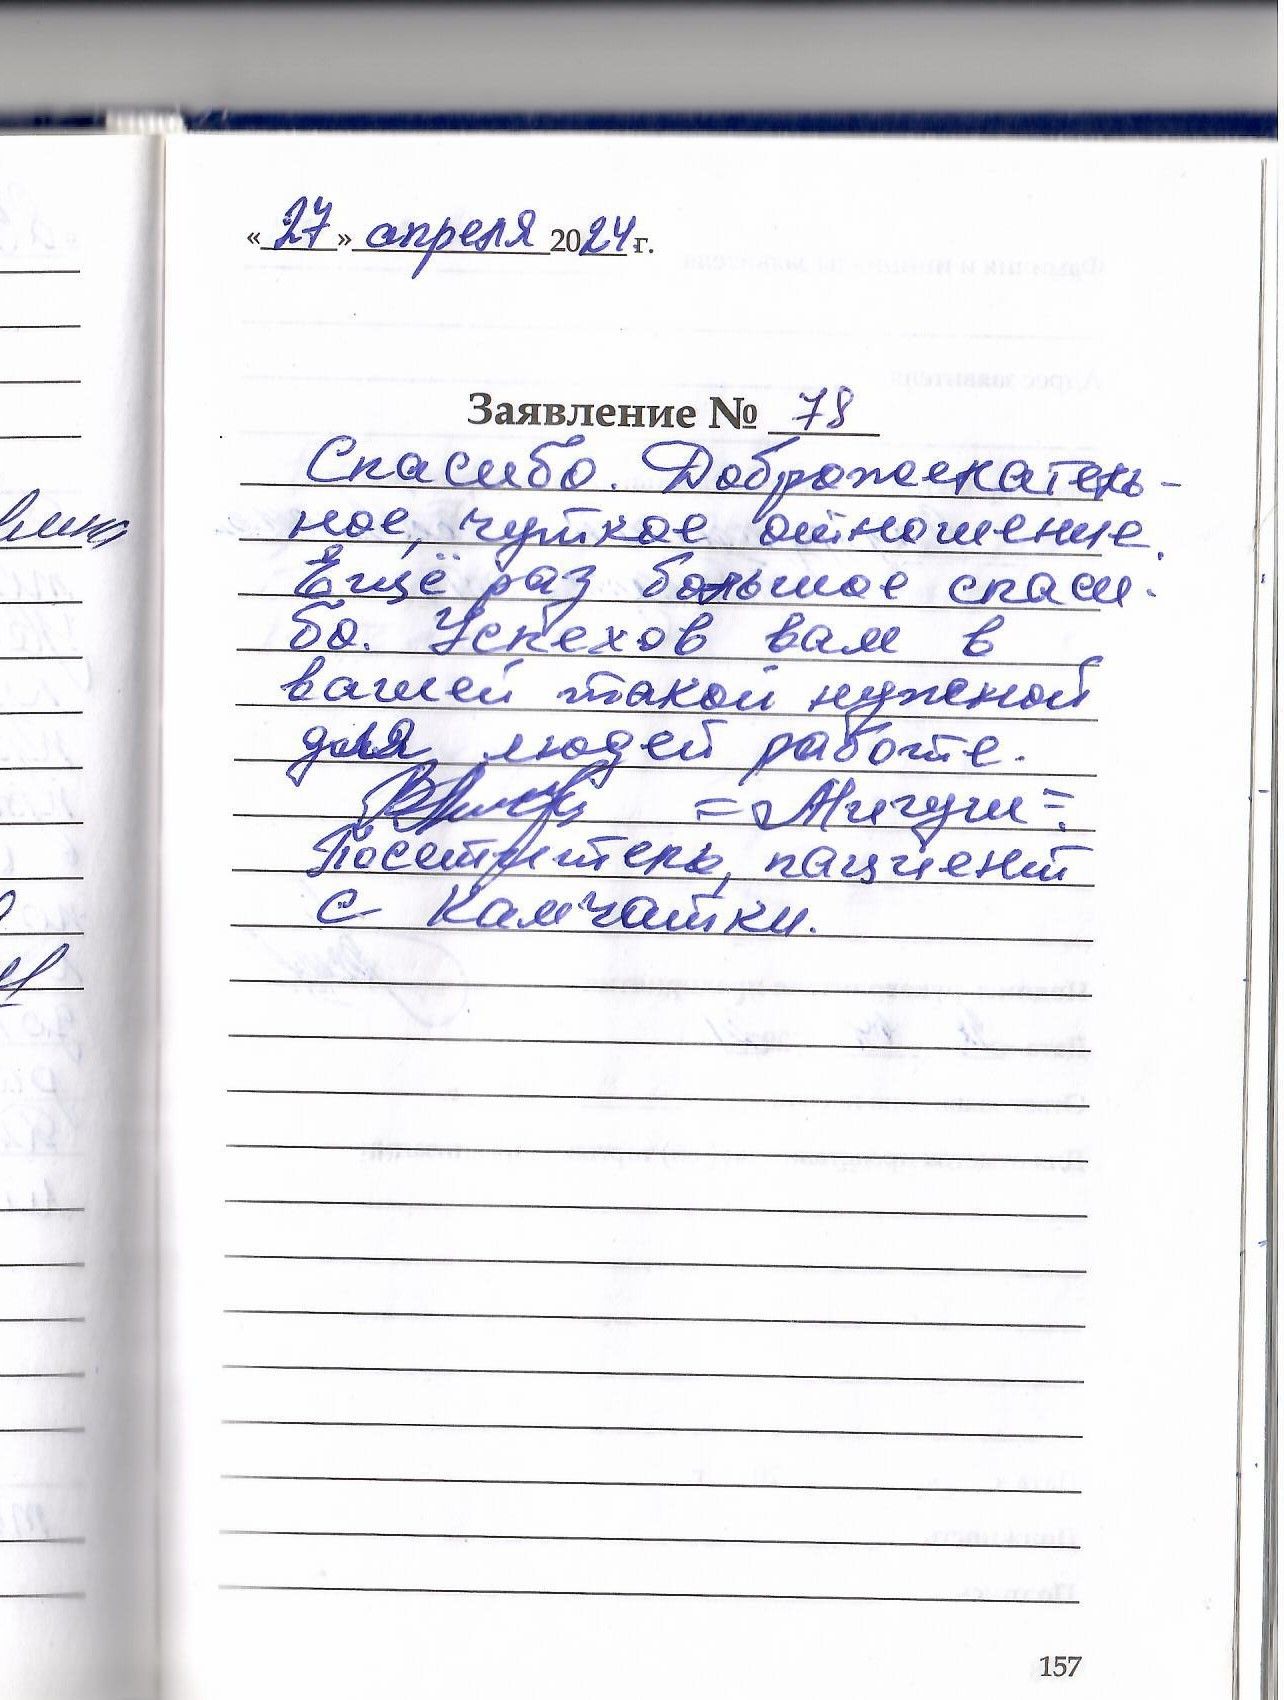 «27» апреля 2024 г.
Заявление № 78
Спасибо. Доброжелатель-
ное, чуткое отношение.
Ещё раз большое спаси-
бо. Успехов вам в
вашей такой нужной
для людей работе.
=Мигуш=
Посетитель, пациент
с Камчатки.
157